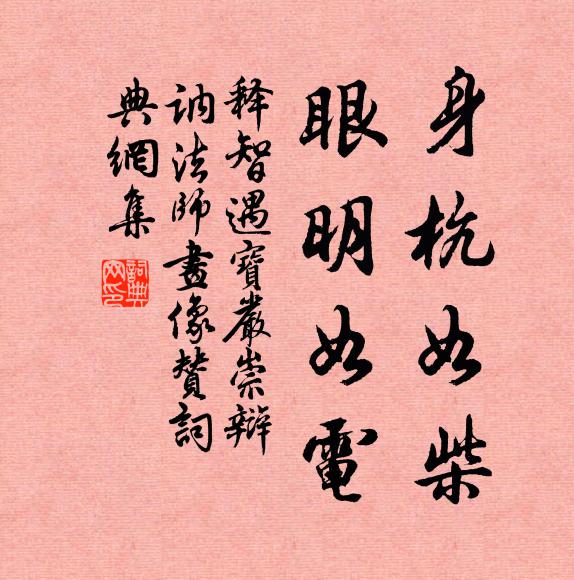 身杭如柴
眼明如電
释智遇寶嚴崇辯
訥法師畫像贊詞
典網集
詞典網印